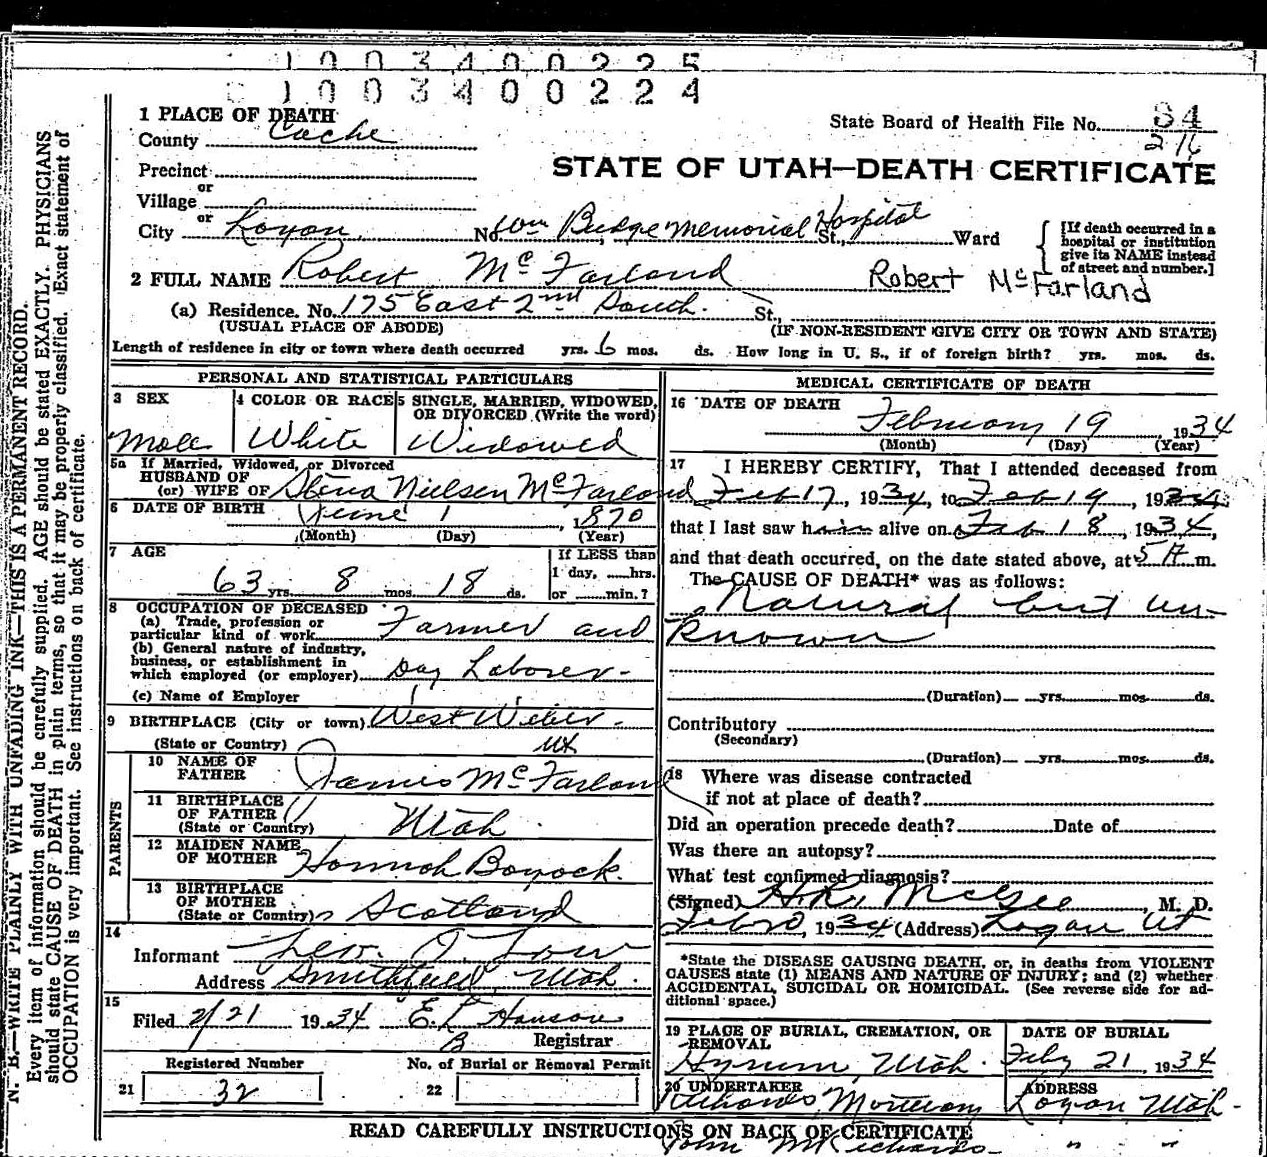 1 0 0 3 4 0 0 2 2 5
1 0 0 3 4 0 0 2 2 4
1 PLACE OF DEATH
County Cache
State Board of Health File No. 34
216
Precinct
or
Village
or
STATE OF UTAH—DEATH CERTIFICATE
City Logan No. Wm Budge Memorial Hospital St., Ward
[If death occurred in a
hospital or institution
give its NAME instead
of street and number.]
2 FULL NAME Robert McFarland Robert McFarland
(a) Residence. No. 175 East 2nd South. St.,
(USUAL PLACE OF ABODE) (IF NON-RESIDENT GIVE CITY OR TOWN AND STATE)
Length of residence in city or town where death occurred yrs. 6 mos. ds. How long in U. S., if of foreign birth? yrs. mos. ds.
PERSONAL AND STATISTICAL PARTICULARS
3 SEX
Male
4 COLOR OR RACE
White
5 SINGLE, MARRIED, WIDOWED,
OR DIVORCED (Write the word)
Widowed
5a If Married, Widowed, or Divorced
HUSBAND OF
(or) WIFE OF Stena Nielsen McFarland
6 DATE OF BIRTH June 1, 1870
(Month) (Day) (Year)
7 AGE
63 yrs. 8 mos. 18 ds.
If LESS than
1 day, hrs.
or min.?
8 OCCUPATION OF DECEASED
(a) Trade, profession or
particular kind of work Farmer and
(b) General nature of industry,
business, or establishment in
which employed (or employer) Day Laborer-
(c) Name of Employer
9 BIRTHPLACE (City or town) West Weber-
(State or Country) Ut
PARENTS
10 NAME OF
FATHER James McFarland
11 BIRTHPLACE
OF FATHER
(State or Country) Utah.
12 MAIDEN NAME
OF MOTHER Hannah Boyack.
13 BIRTHPLACE
OF MOTHER
(State or Country) Scotland
14
Informant Leo. Low
Address Smithfield, Utah.
15
Filed 2/21 1934 E.L. Hanson
Registrar
Registered Number No. of Burial or Removal Permit
21 32 22
MEDICAL CERTIFICATE OF DEATH
16 DATE OF DEATH
February 19 1934
(Month) (Day) (Year)
17 I HEREBY CERTIFY, That I attended deceased from
Feb 17, 1934, to Feb 19, 1934,
that I last saw him alive on Feb 18, 1934,
and that death occurred, on the date stated above, at 5 A m.
The CAUSE OF DEATH* was as follows:
Natural but un-
known
(Duration) yrs. mos. ds.
Contributory
(Secondary)
(Duration) yrs. mos. ds.
18 Where was disease contracted
if not at place of death?
Did an operation precede death? Date of
Was there an autopsy?
What test confirmed diagnosis?
(Signed) H.R. McGee, M. D.
Feb 20, 1934 (Address) Logan Ut
*State the DISEASE CAUSING DEATH, or, in deaths from VIOLENT
CAUSES state (1) MEANS AND NATURE OF INJURY; and (2) whether
ACCIDENTAL, SUICIDAL OR HOMICIDAL. (See reverse side for ad-
ditional space.)
19 PLACE OF BURIAL, CREMATION, OR
REMOVAL
Hyrum, Utah.
DATE OF BURIAL
Feby 21, 1934
20 UNDERTAKER
ADDRESS
Logan Utah-
READ CAREFULLY INSTRUCTIONS ON BACK OF CERTIFICATE
John M Richards- " " "
N. B.—WRITE PLAINLY WITH UNFADING INK—THIS IS A PERMANENT RECORD.
Every item of information should be carefully supplied. AGE should be stated EXACTLY. PHYSICIANS
should state CAUSE OF DEATH in plain terms, so that it may be properly classified. Exact statement of
OCCUPATION is very important. See instructions on back of certificate.